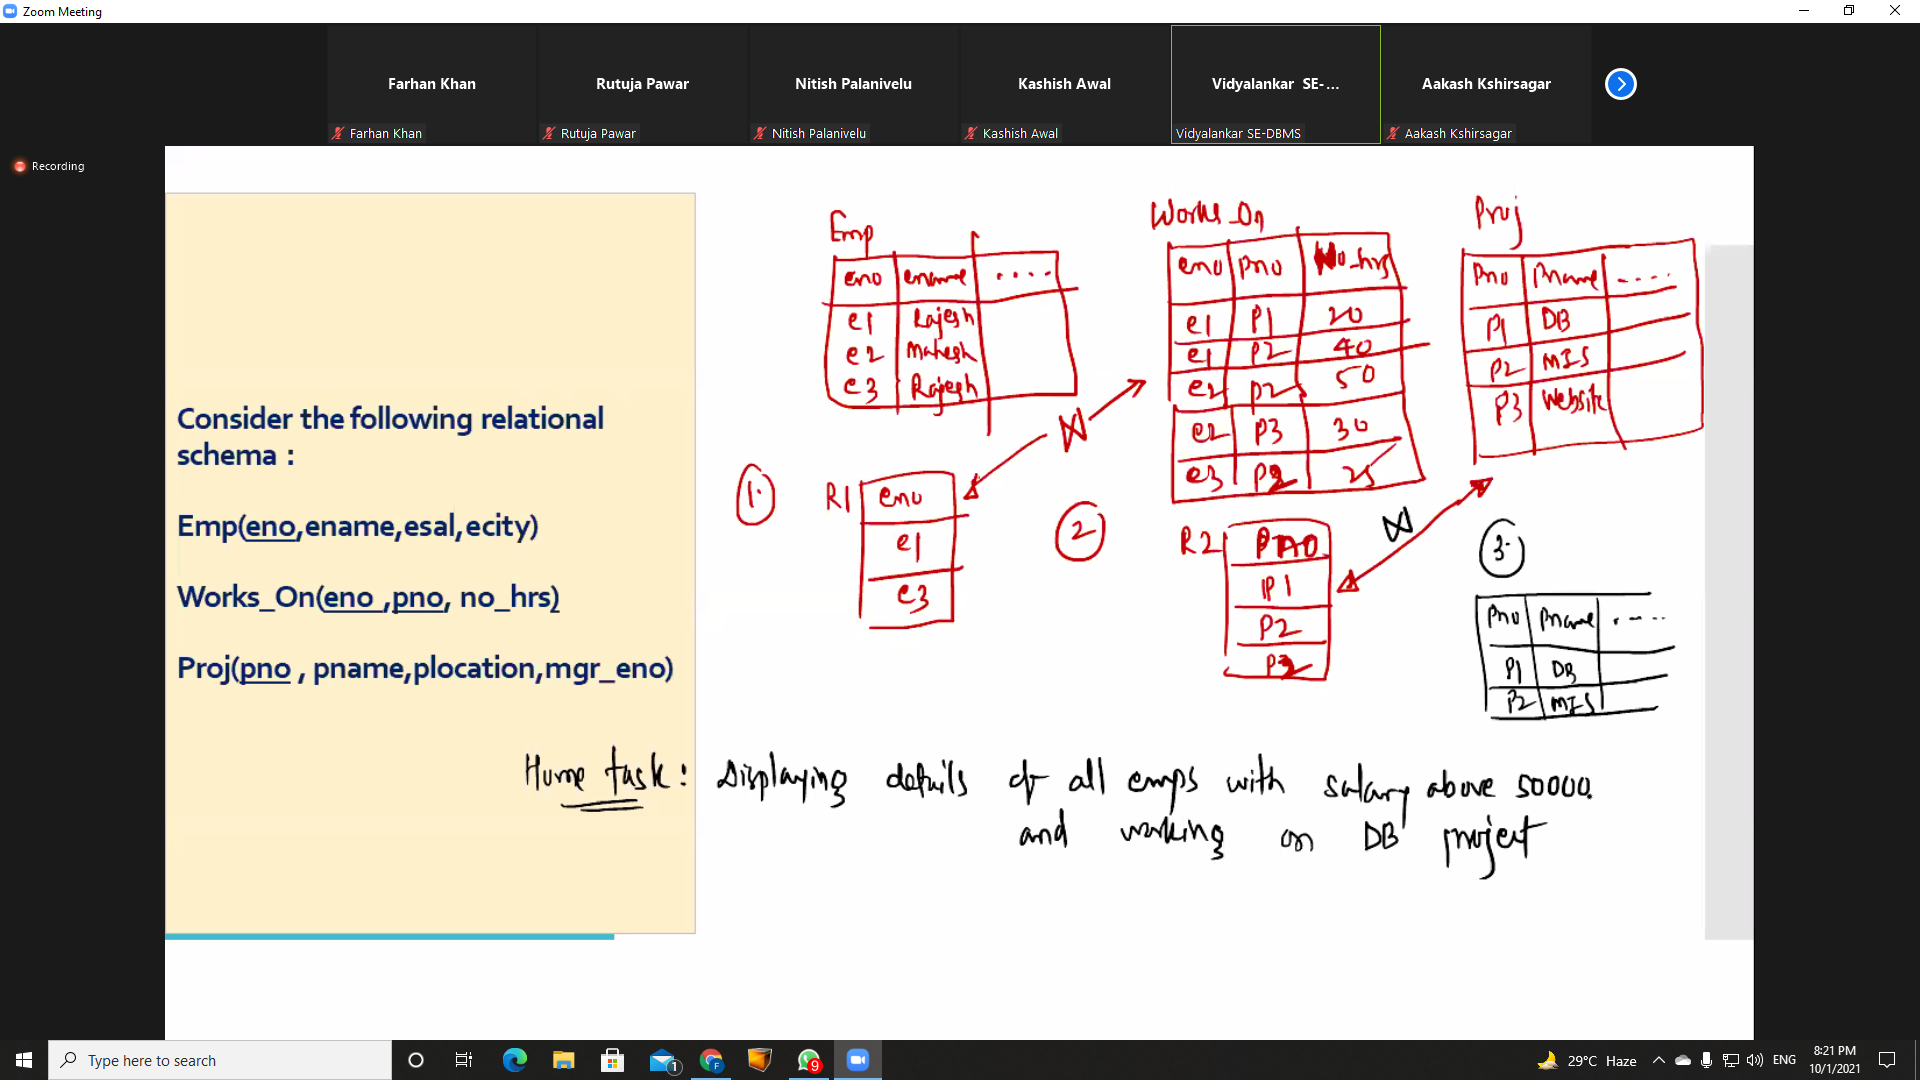 Zoom Meeting
Farhan Khan
Rutuja Pawar
Nitish Palanivelu
Kashish Awal
Vidyalankar SE-...
Aakash Kshirsagar
Farhan Khan
Rutuja Pawar
Nitish Palanivelu
Kashish Awal
Vidyalankar SE-DBMS
Aakash Kshirsagar
Recording
Consider the following relational
schema :
Emp(eno,ename,esal,ecity)
Works_On(eno ,pno, no_hrs)
Proj(pno , pname,plocation,mgr_eno)
Emp
eno ename ....
e1 Rajesh
e2 Mahesh
e3 Rajesh
Works_On
eno pno No_hrs
e1 P1 20
e1 P2 40
e2 P2 50
e2 P3 30
e3 P2 25
Proj
Pno Pname ....
P1 DB
P2 MIS
P3 Website
⋈
1.
R1
eno
e1
e3
2
R2
Pno
P1
P2
P2
⋈
3.
Pno Pname ....
P1 DB
P2 MIS
Home task : Displaying details of all emps with salary above 50000.
and working on DB project
Type here to search
1
9
29°C Haze
ENG
8:21 PM
10/1/2021